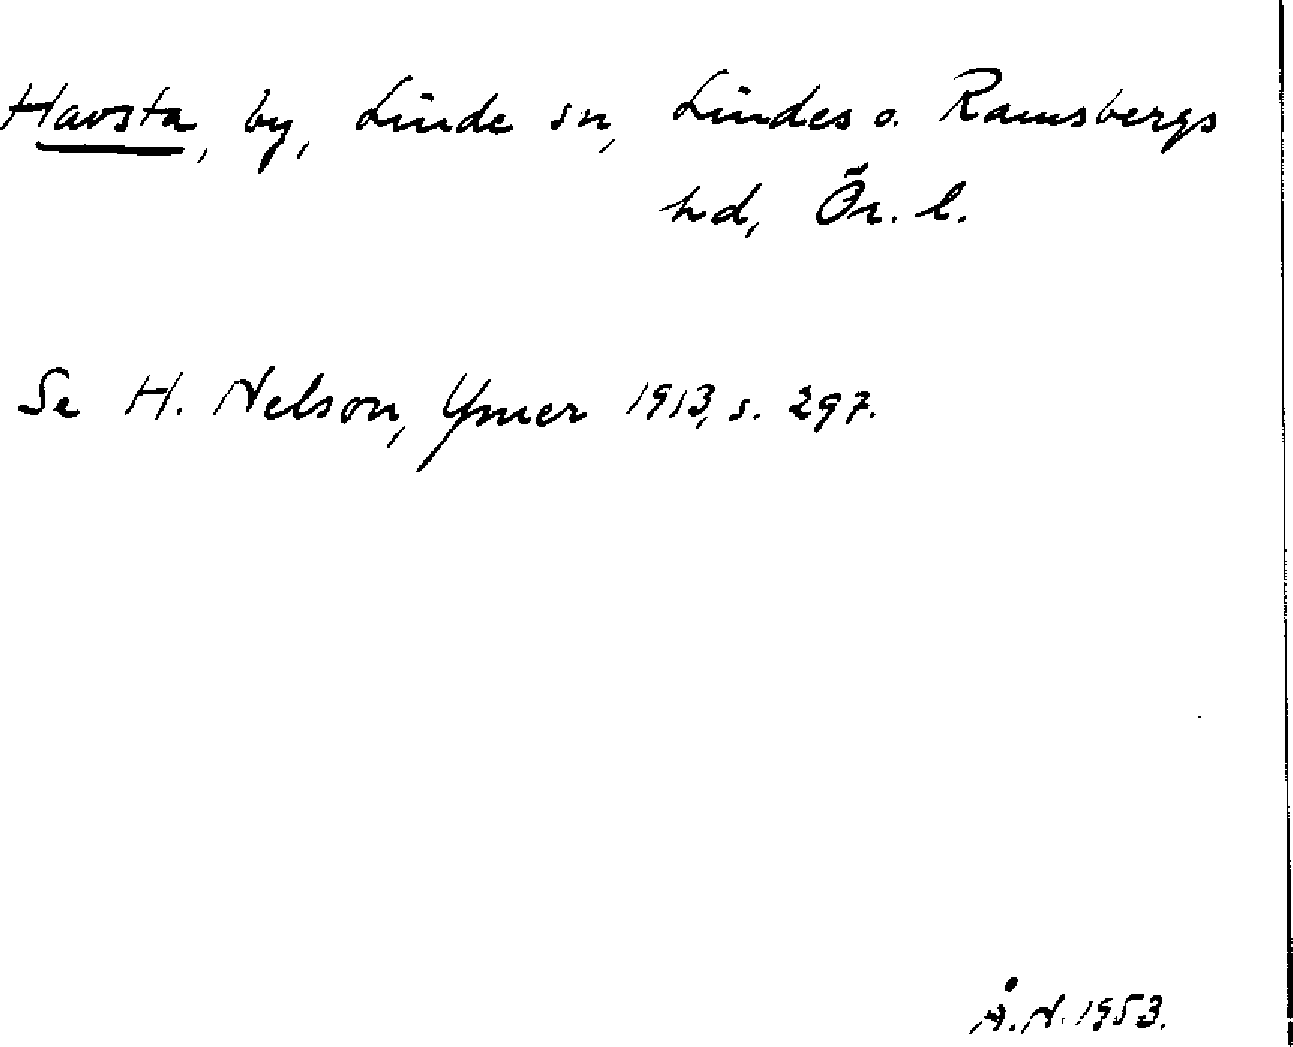 Havsta, by, Linde sn, Lindes o. Ramsbergs
hd, Ör. l.
Se H. Nelson, Ymer 1913, s. 297.
Å.N. 1953.